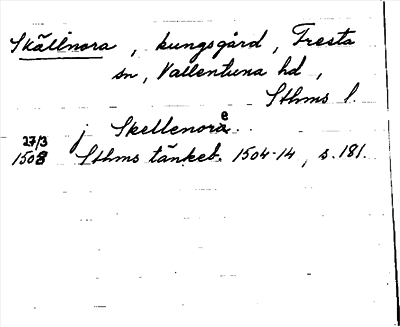 Skällnora, kungsgård, Fresta
sn, Vallentuna hd,
Sthms l.
j Skellenore
27/3
1508 Sthms tänkeb. 1504-14, s. 181.